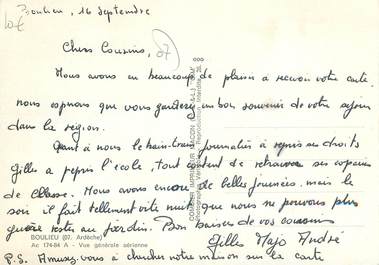 Boulieu, 16 septembre
Chers Cousins,
07
Nous avons eu beaucoup de plaisir à recevoir votre carte
nous espérons que vous garderez un bon souvenir de votre séjour
dans la région.
Quant à nous le train-train journalier à repris ses droits
Gilles a repris l'école, tout content de retrouver ses copains
de classe. Nous avons encore de belles journées, mais le
soir il fait tellement vite nuit que nous ne pouvons plus
guère rester au jardin. Bon baiser de vos cousins
BOULIEU (07. Ardèche)
Ac 174-84 A - Vue générale aérienne
Gilles Majo André
P.S. Amusez-vous à chercher votre maison sur la carte
COMBIER IMPRIMEUR MACON
Reproduction interdite